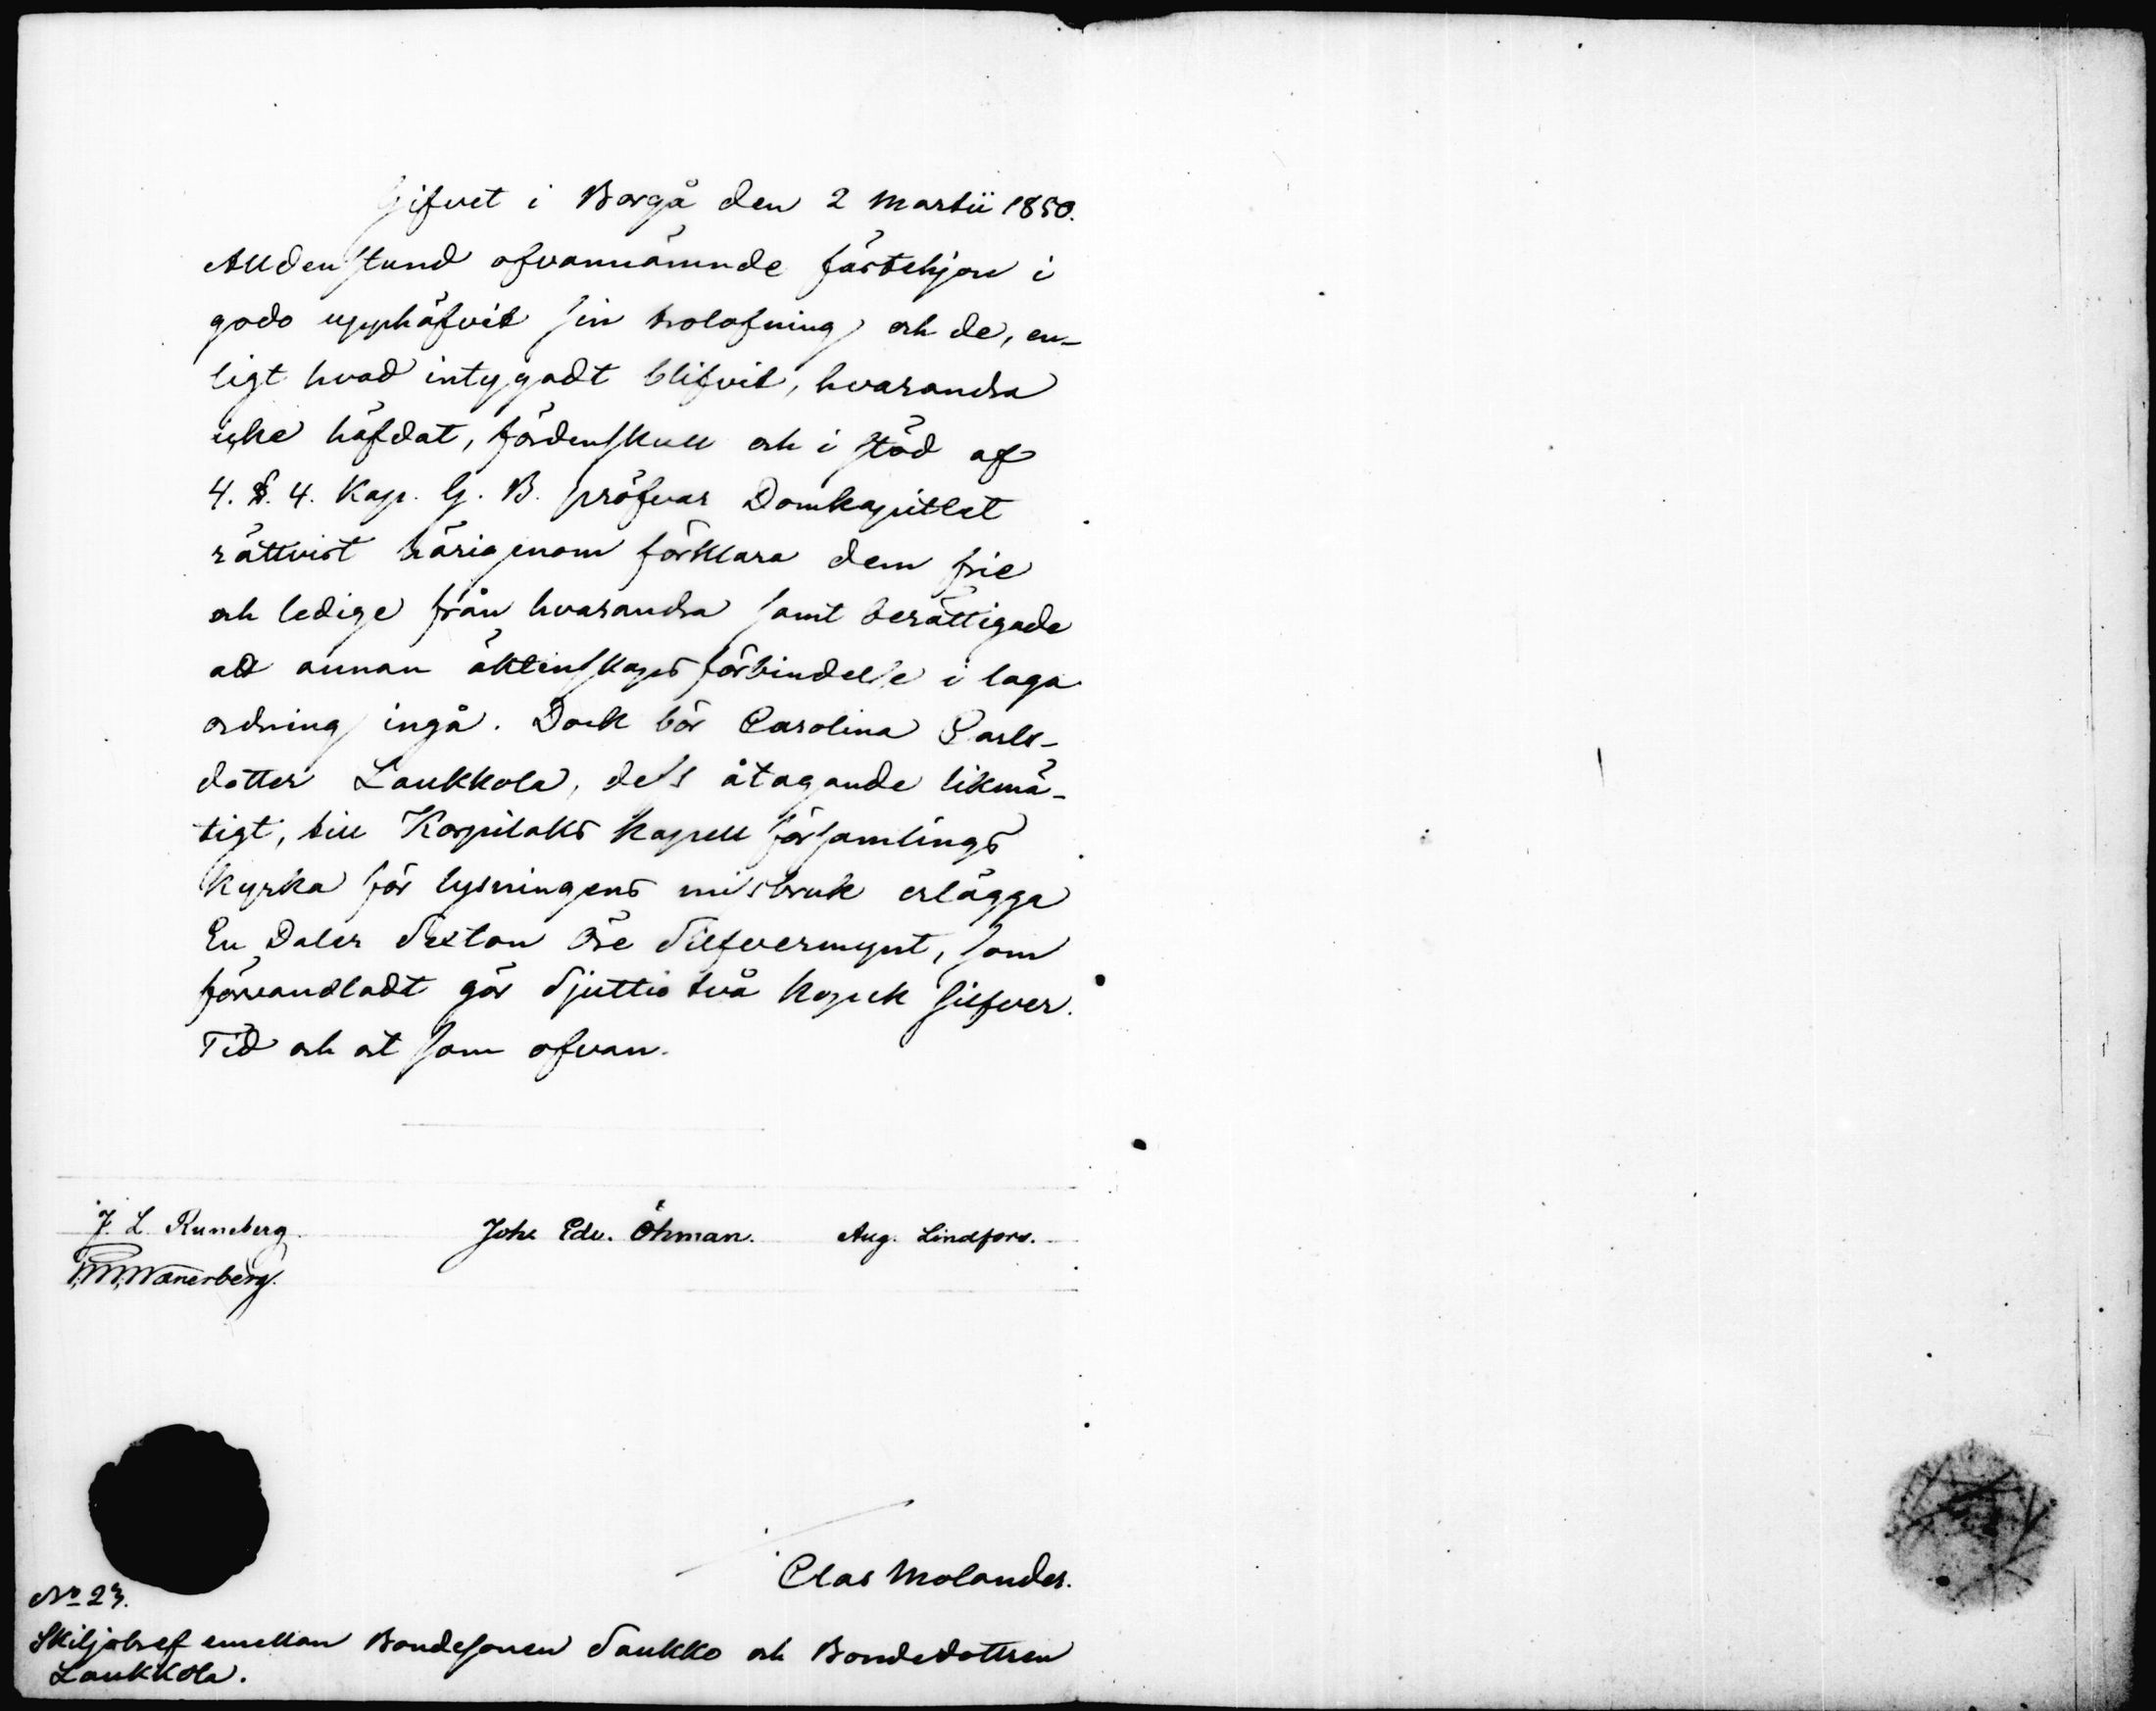 Gifvet i Borgå den 2 Martii 1850.
Alldenstund ofvannämnde fästehjon i
godo upphäfvit sin trolofning och de, en-
ligt hvad intygadt blifvit, hvarandra
icke häfdat, fördenskull och i stöd af
4. §. 4. Kap. G. B. pröfvar Domkapitlet
rättvist härigenom förklara dem frie
och ledige från hvarandra samt berättigade
att annan äktenskapsförbindelse i laga
ordning ingå. Dock bör Carolina Carls-
dotter Laukkola, dess åtagande likmä-
tigt, till Korpilaks Kapell församlings
Kyrka för lysningens misbruk erlägga
En Daler Sexton Öre Silfvermynt, som
förvandladt gör Sjuttio två kopek silfver.
Tid och ort som ofvan.
J. L. Runeberg. Joh. Edv. Öhman. Aug. Lindfors.
Wanerberg.
Clas Molander.
No 23.
Skiljobref emellan Bondesonen Saukko och Bondedottren
Laukkola.